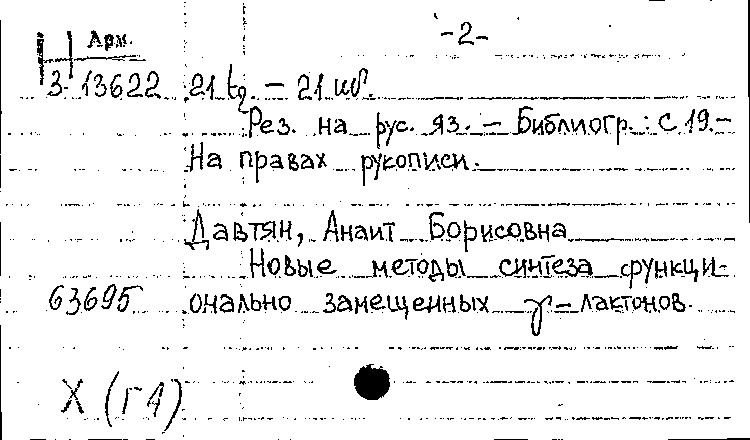 -2-
Арм.
3-13622 21 էջ. – 21 см.
Рез. на рус. яз. – Библиогр.: с 19.–
На правах рукописи.
Давтян, Анаит Борисовна
Новые методы синтеза функци-
63695 онально замещенных γ-лактонов.
X (Г4)